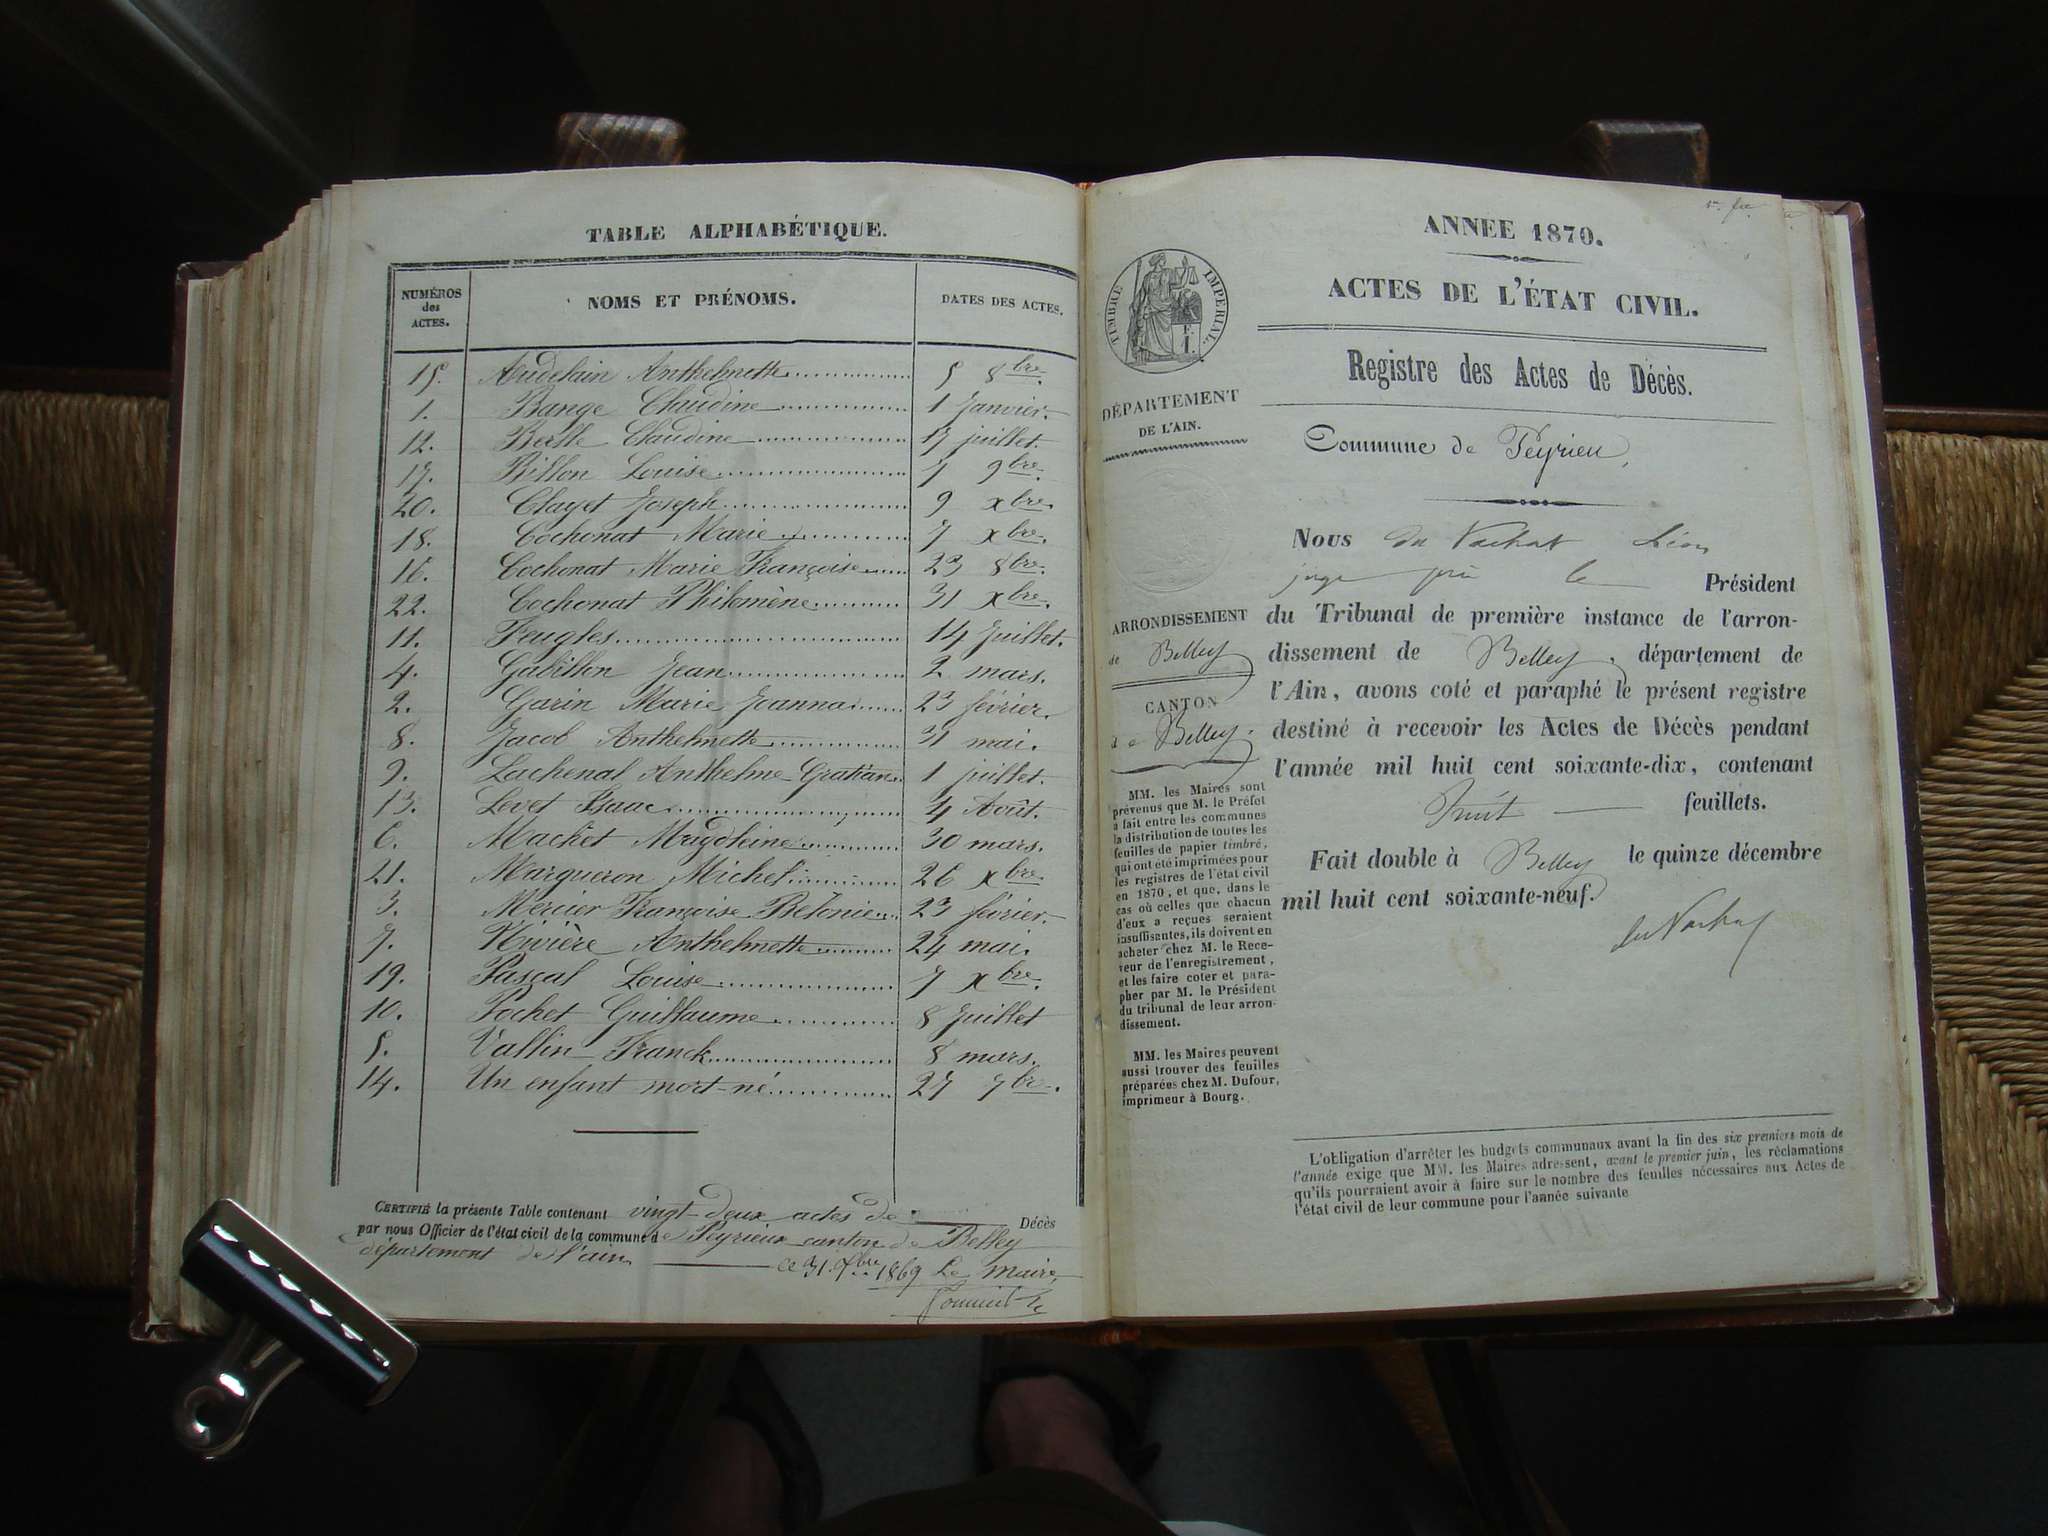 TABLE ALPHABÉTIQUE.
NUMÉROS des ACTES. NOMS ET PRÉNOMS. DATES DES ACTES.
15. Audelain Anthelmette 5 8bre.
1. Bange Claudine 1 Janvier.
12. Berlle Claudine 17 juillet.
17. Billon Louise 7 9bre.
20. Clayet Joseph 9 xbre.
18. Cochonat Marie 7 xbre.
16. Cochonat Marie Françoise 23 8bre.
22. Cochonat Philomène 31 xbre.
11. Feugles 14 Juillet.
4. Gabillon Jean 2 mars.
2. Garin Marie Joanna 23 février.
8. Jacob Anthelmette 31 mai.
9. Lachenal Anthelme Gratian 1 juillet.
13. Levet Isaac 4 Août.
6. Machet Magdeleine 30 mars.
21. Margueron Michel 26 xbre.
3. Mercier Françoise Belonie 23 février.
7. Rivière Anthelmette 24 mai.
19. Pascal Louise 7 xbre.
10. Pochet Guillaume 8 Juillet
5. Vallin Franck 8 mars.
14. Un enfant mort-né 27 7bre.
CERTIFIÉ la présente Table contenant vingt-deux actes de Décès
par nous Officier de l'état civil de la commune de Peyrieux canton de Belley
département de l'ain ce 31 xbre 1869 Le Maire,
ANNÉE 1870.
ACTES DE L'ÉTAT CIVIL.
Registre des Actes de Décès.
Commune de Peyrieu,
TIMBRE IMPERIAL.
DÉPARTEMENT
DE L'AIN.
ARRONDISSEMENT
de Belley
CANTON
de Belley.
MM. les Maires sont
prévenus que M. le Préfet
a fait entre les communes
la distribution de toutes les
feuilles de papier timbré,
qui ont été imprimées pour
les registres de l'état civil
en 1870, et que, dans le
cas où celles que chacun
d'eux a reçues seraient
insuffisantes, ils doivent en
acheter chez M. le Rece-
veur de l'enregistrement,
et les faire coter et para-
pher par M. le Président
du tribunal de leur arron-
dissement.
MM. les Maires peuvent
aussi trouver des feuilles
préparées chez M. Dufour,
imprimeur à Bourg.
Nous du Vachat Léon
juge le Président
du Tribunal de première instance de l'arron-
dissement de Belley, département de
l'Ain, avons coté et paraphé le présent registre
destiné à recevoir les Actes de Décès pendant
l'année mil huit cent soixante-dix, contenant
huit feuillets.
Fait double à Belley le quinze décembre
mil huit cent soixante-neuf.
du Vachat
L'obligation d'arrêter les budgets communaux avant la fin des six premiers mois de
l'année exige que MM. les Maires adressent, avant le premier juin, les réclamations
qu'ils pourraient avoir à faire sur le nombre des feuilles nécessaires aux Actes de
l'état civil de leur commune pour l'année suivante